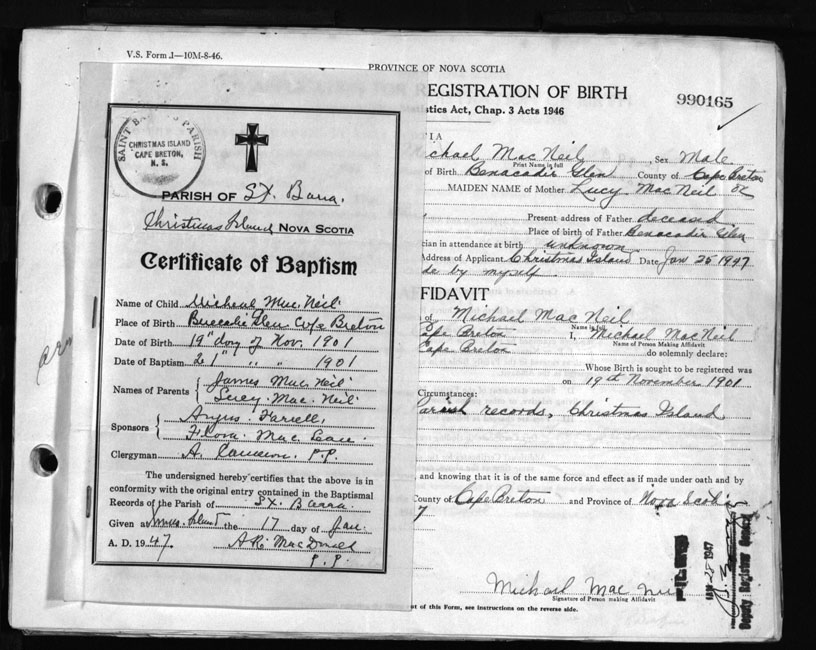 V.S. Form 1—10M-8-46.
PROVINCE OF NOVA SCOTIA
EGISTRATION OF BIRTH
stics Act, Chap. 3 Acts 1946
990165
TIA
ichael Mac Neil, Sex Male
Print Name in full
of Birth Benacadie Glen County of Cape Breton
MAIDEN NAME of Mother Lucy Mac Neil
Present address of Father deceased
Place of birth of Father Benacadie Glen
cian in attendance at birth unknown
Address of Applicant Christmas Island Date Jan 25 1947
de by myself
FIDAVIT
of Michael Mac Neil
Name in full
Cape Breton I, Michael MacNeil
Name of Person Making Affidavit
Cape Breton do solemnly declare:
Whose Birth is sought to be registered was
on 19th November 1901
Circumstances:
Parish records, Christmas Island
, and knowing that it is of the same force and effect as if made under oath and by
County of Cape Breton and Province of Nova Scotia
7
Michael Mac Neil
Signature of Person making Affidavit
t of this Form, see instructions on the reverse side.
FILED
JAN -28 1947
Deputy Registrar General
SAINT BARRA'S PARISH
CHRISTMAS ISLAND
CAPE BRETON,
N. S.
PARISH OF St. Barra,
Christmas Island NOVA SCOTIA
Certificate of Baptism
Name of Child Micheal Mac Neil
Place of Birth Glen Cape Breton
Date of Birth 19" day of Nov. 1901
Date of Baptism 21 " " " 1901
Names of Parents { James Mac Neil
Lucy Mac Neil
Sponsors { Angus Farrell
Flora Mac Lean
Clergyman A. Cameron P.P.
The undersigned hereby certifies that the above is in
conformity with the original entry contained in the Baptismal
Records of the Parish of St. Barra
Given at Xmas. Island the 17 day of Jan.
A. D. 1947. MacDonald
P. P.